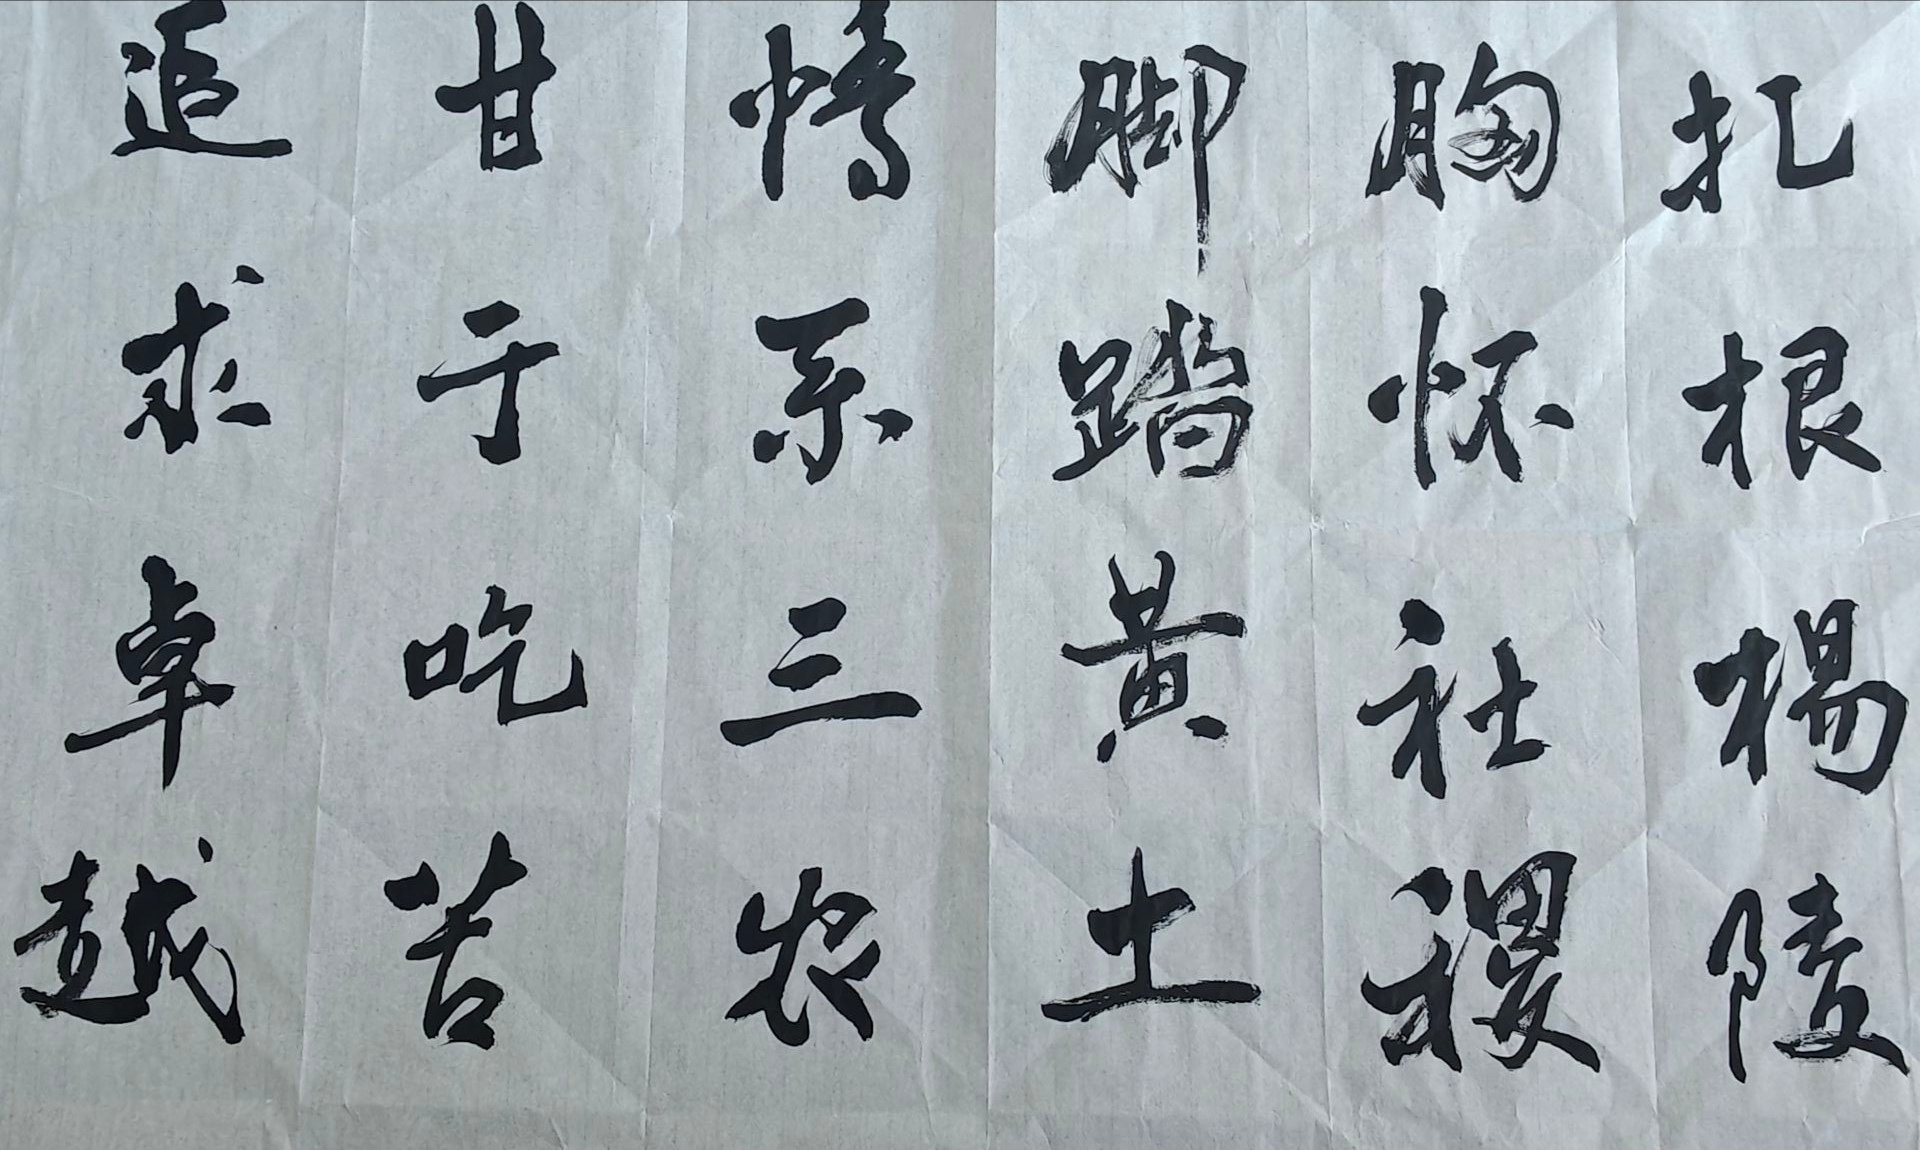 扎根杨陵
胸怀社稷
脚踏黄土
情系三农
甘于吃苦
追求卓越